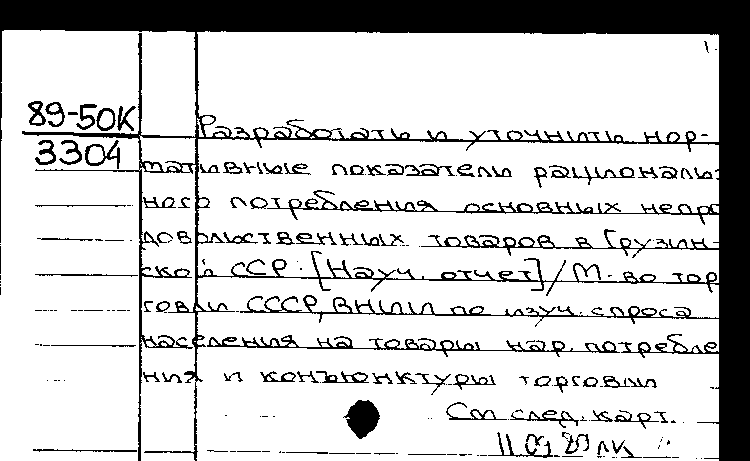 1.
89-50К
3304
Разработать и уточнить нор-
мативные показатели рациональ-
ного потребления основных непро
довольственных товаров в Грузин-
ской ССР: [Науч. отчет] / М-во тор
говли СССР, ВНИИ по изуч. спроса
населения на товары нар. потребле
ния и конъюнктуры торговли
См след. карт.
11 09 89 ЛК